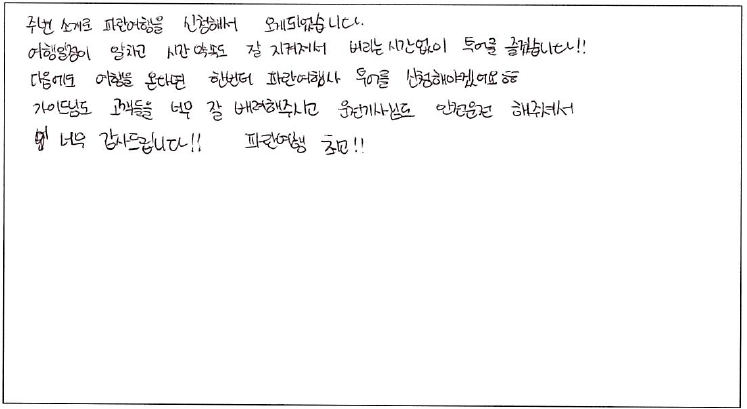 주변 소개로 파란여행을 신청해서 오게되었습니다.
여행일정이 알차고 시간 약속도 잘 지켜져서 버리는 시간없이 투어를 즐겼습니다!!
다음에도 여행을 온다면 한번더 파란여행사 투어를 신청해야겠어요ㅎㅎ
가이드님도 고객들을 너무 잘 배려해주시고 운전기사님도 안전운전 해주셔서
너무 감사드립니다!! 파란여행 최고!!